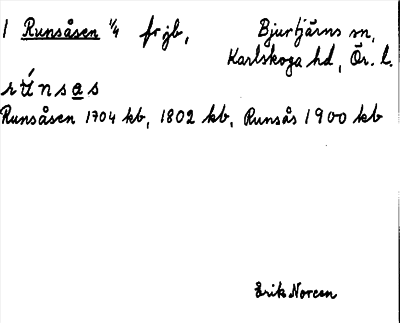 1 Runsåsen 1/4 frjb, Bjurtjärns sn,
Karlskoga hd, Ör. l.
rú̄nsa̲s
Runsåsen 1704 kb, 1802 kb, Runsås 1900 kb
Erik Noreen